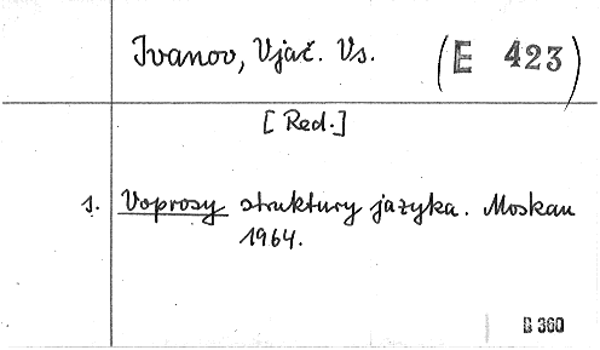 Ivanov, Vjač. Vs. (E 423)
[Red.]
s. Voprosy struktury jazyka. Moskau
1964.
B 360